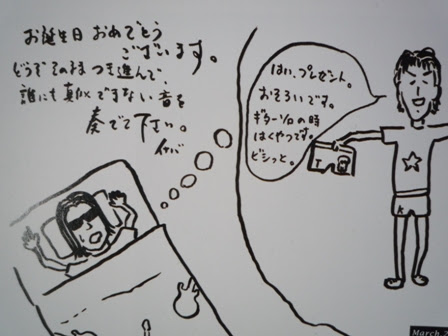 お誕生日 おめでとう
ございます。
どうぞそのまま つき進んで、
誰にも真似できない音を
奏でて下さい。
イナバ
はい、プレゼント。
おそろいです。
ギターソロの時
はくやつです。
ビシっと。
T
K
March.